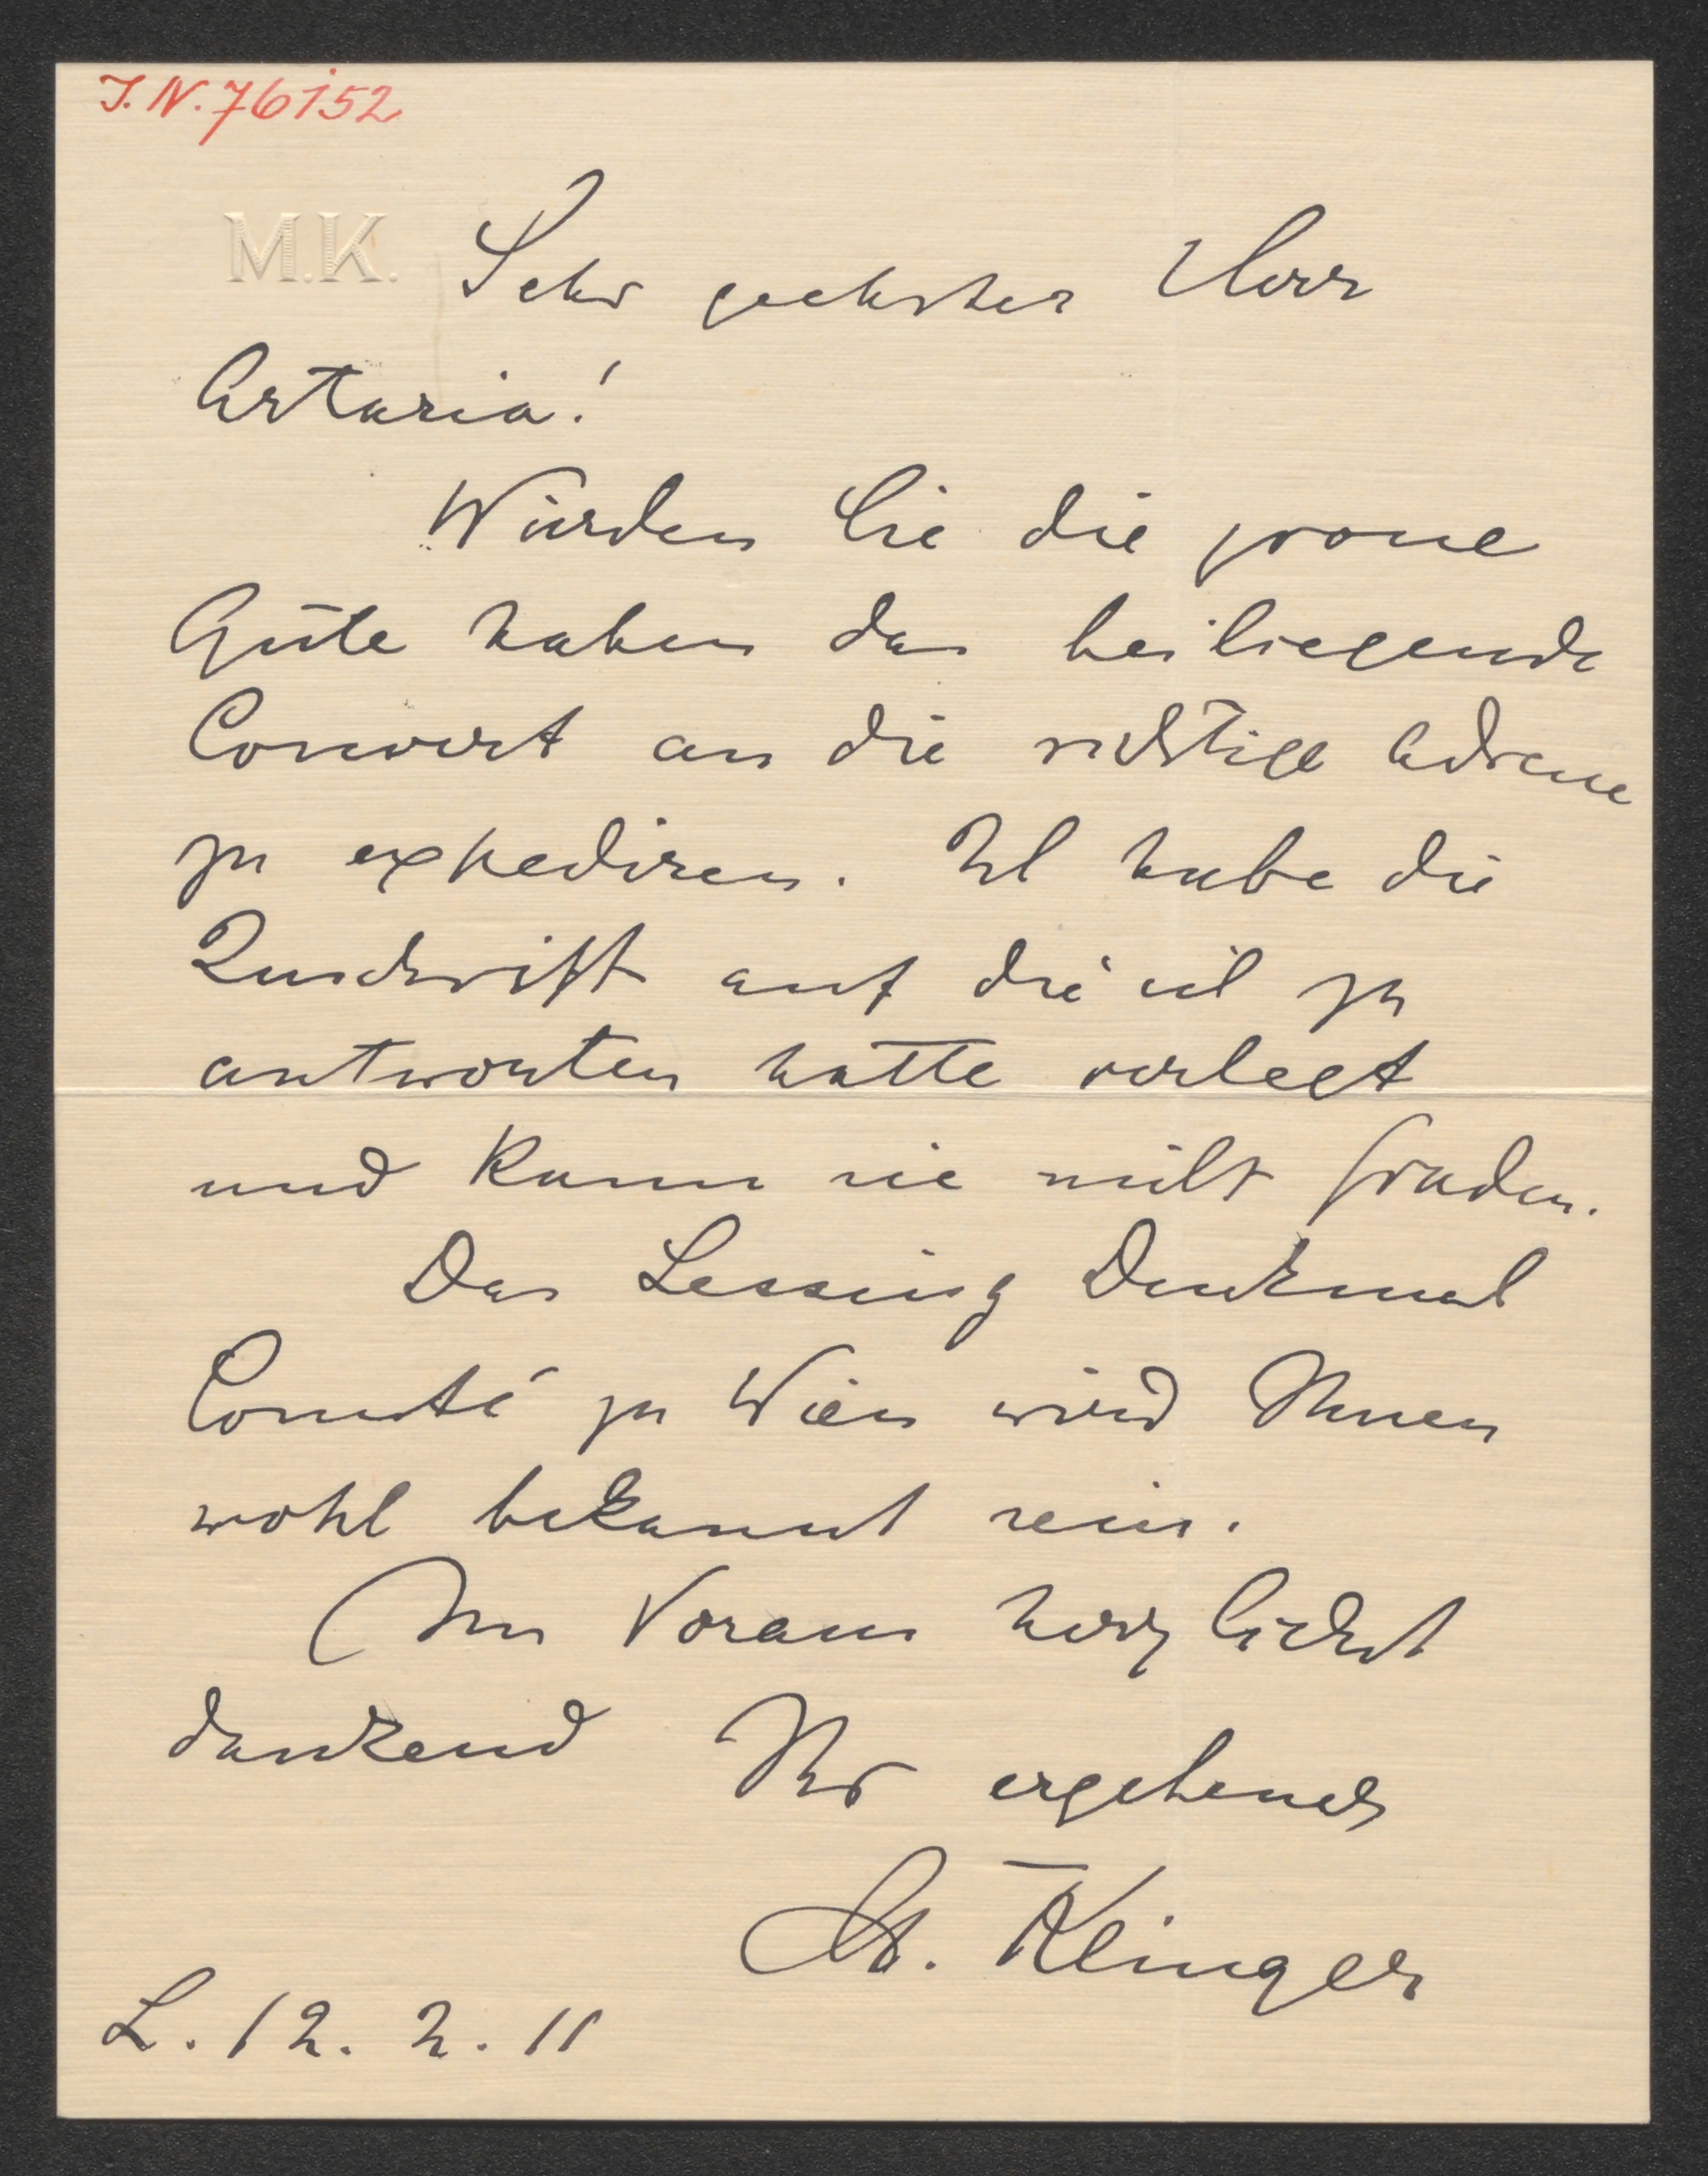 J.N. 76152
M.K.
Sehr geehrter Herr
Artaria!
Würden Sie die grosse
Güte haben das beiliegende
Convert an die richtige Adresse
zu expediren. Ich habe die
Zuschrift auf die ich zu
antworten hatte verlegt
und kann sie nicht finden.
Das Lessing Denkmal
Comité zu Wien wird Ihnen
wohl bekannt sein.
Im Voraus herzlichst
dankend Ihr ergebenster
M. Klinger
L. 12. 2. 11